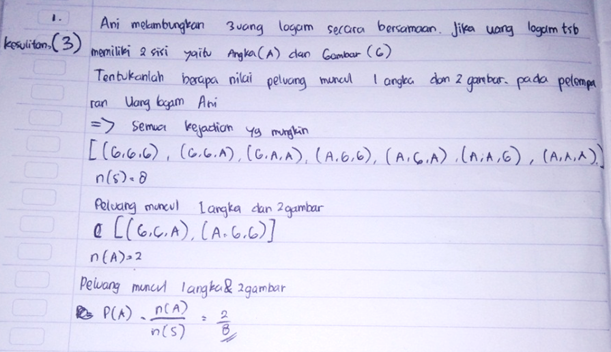 1. Ani melambungkan 3 uang logam secara bersamaan. Jika uang logam tsb
kesulitan (3) memiliki 2 sisi yaitu Angka (A) dan Gambar (G)
Tentukanlah berapa nilai peluang muncul 1 angka dan 2 gambar. pada pelempa
ran Uang logam Ani
=> Semua kejadian yg mungkin
[(G,G,G), (G,G,A), (G,A,A), (A,G,G), (A,G,A), (A,A,G), (A,A,A)]
n(S)=8
Peluang muncul 1 angka dan 2 gambar
[(G,G,A), (A,G,G)]
n(A)=2
Peluang muncul 1 angka & 2 gambar
P(A) = n(A)/n(S) = 2/8